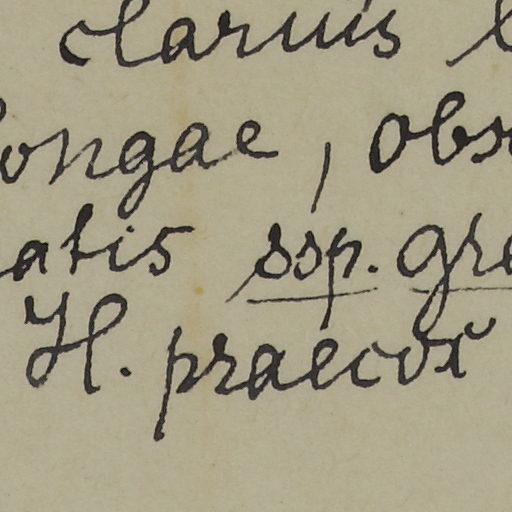 clarus
longae, obs
atis ssp. gre
H. praecox